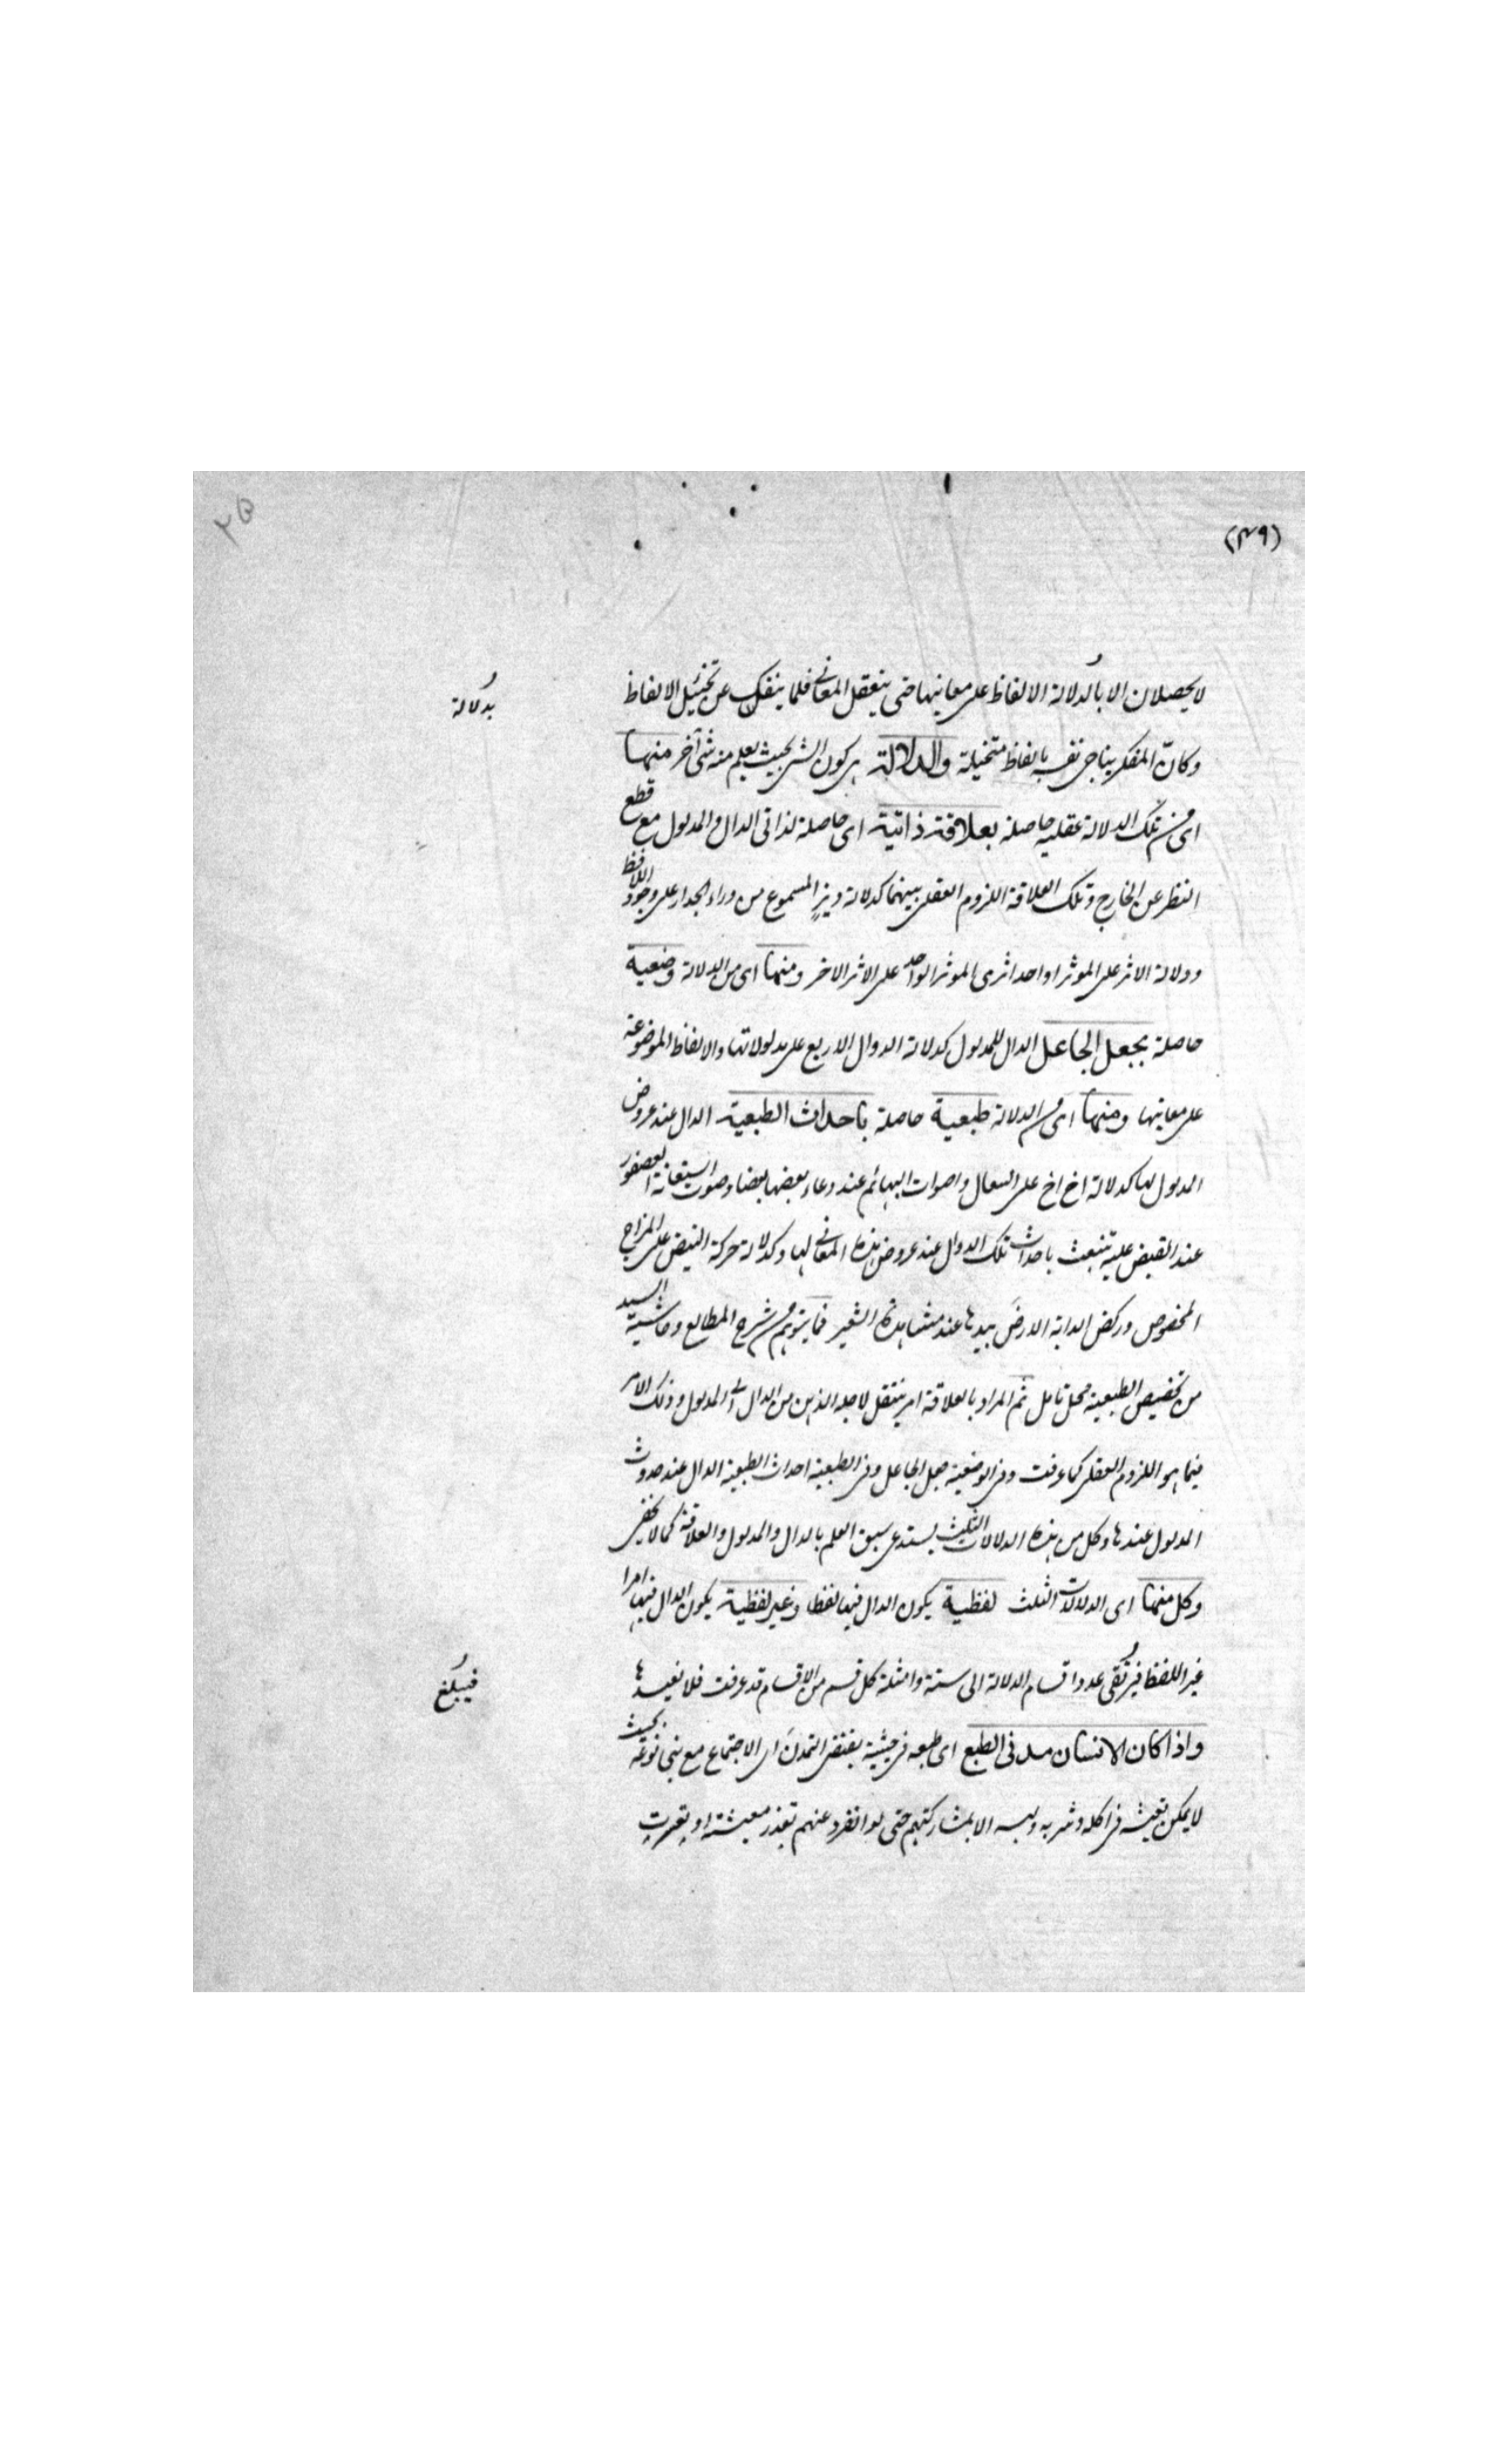 (٤٩)
٢٥
لا يحصلان الا بالدلالة الالفاظ على معانيها حتى يتعقل المعاني فلما ينفك عن تخيّل الالفاظ
بدلالة
وكانّ المفكر يناجى نفسه بالفاظ متخيلة والدلالة هى كون الشى بحيث يعلم منه شئ آخر منها
اى من تلك الدلالة عقليه حاصلة بعلاقة ذاتية اى حاصلة لذاتى الدال والمدلول مع قطع
النظر عن الخارج وتلك العلاقة اللزوم العقلى بينهما كدلالة ديزٍ المسموع من وراء الجدار على وجود اللافظ
ودلالة الاثر على الموثر او احد اثرى الموثر الواحد على الاثر الاخر ومنها اى من الدلالة وضعية
حاصلة بجعل الجاعل الدال للمدلول كدلالة الدوال الاربع على مدلولاتها والالفاظ الموضوعة
على معانيها ومنها اى من الدلالة طبعية حاصلة باحداث الطبعية الدال عند عروض
المدلول لها كدلالة اخ اخ على السعال واصوات البهائم عند دعاء بعضها بعضا وصوت استغاثة العصفور
عند القبض عليه تنبعث باحداث تلك الدوال عند عروض هذه المعاني لها وكدلالة حركة النبض على المزاج
المخصوص وركض الدابة الارضَ بيدها عند مشاهدة الشعير فما يتوهم من شرح المطالع وحاشية السيد
من تخصيص الطبعية محل تامل ثم المراد بالعلاقة امر ينتقل لاجله الذهن من الدال الى المدلول وذلك الامر
فيما هو اللزوم العقلى كما عرفت وفى الوضعية جعل الجاعل وفى الطبعية احداث الطبعية الدال عند حدوث
المدلول عندها وكل من هذه الدلالات الثلث يستدعى سبق العلم بالدال والمدلول والعلاقة كما لا يخفى
وكل منها اى الدلالات الثلث لفظية يكون الدال فيها لفظا وغير لفظية يكون الدال فيها امرا
غير اللفظ فيرتقى عدد اقسام الدلالة الى ستة وامثلة كل قسم من الاقسام قد عرفت فلا نعيدها
فيبلغ
واذا كان الانسان مدنى الطبع اى طبعه فى حيثية يقتضى التمدنَ اى الاجتماع مع بنى نوعه بحيث
لا يمكن تعيشه فى اكله وشربه ولبسه الا بمشاركتهم حتى لو انفرد عنهم تعذر معيشته او تعسرت